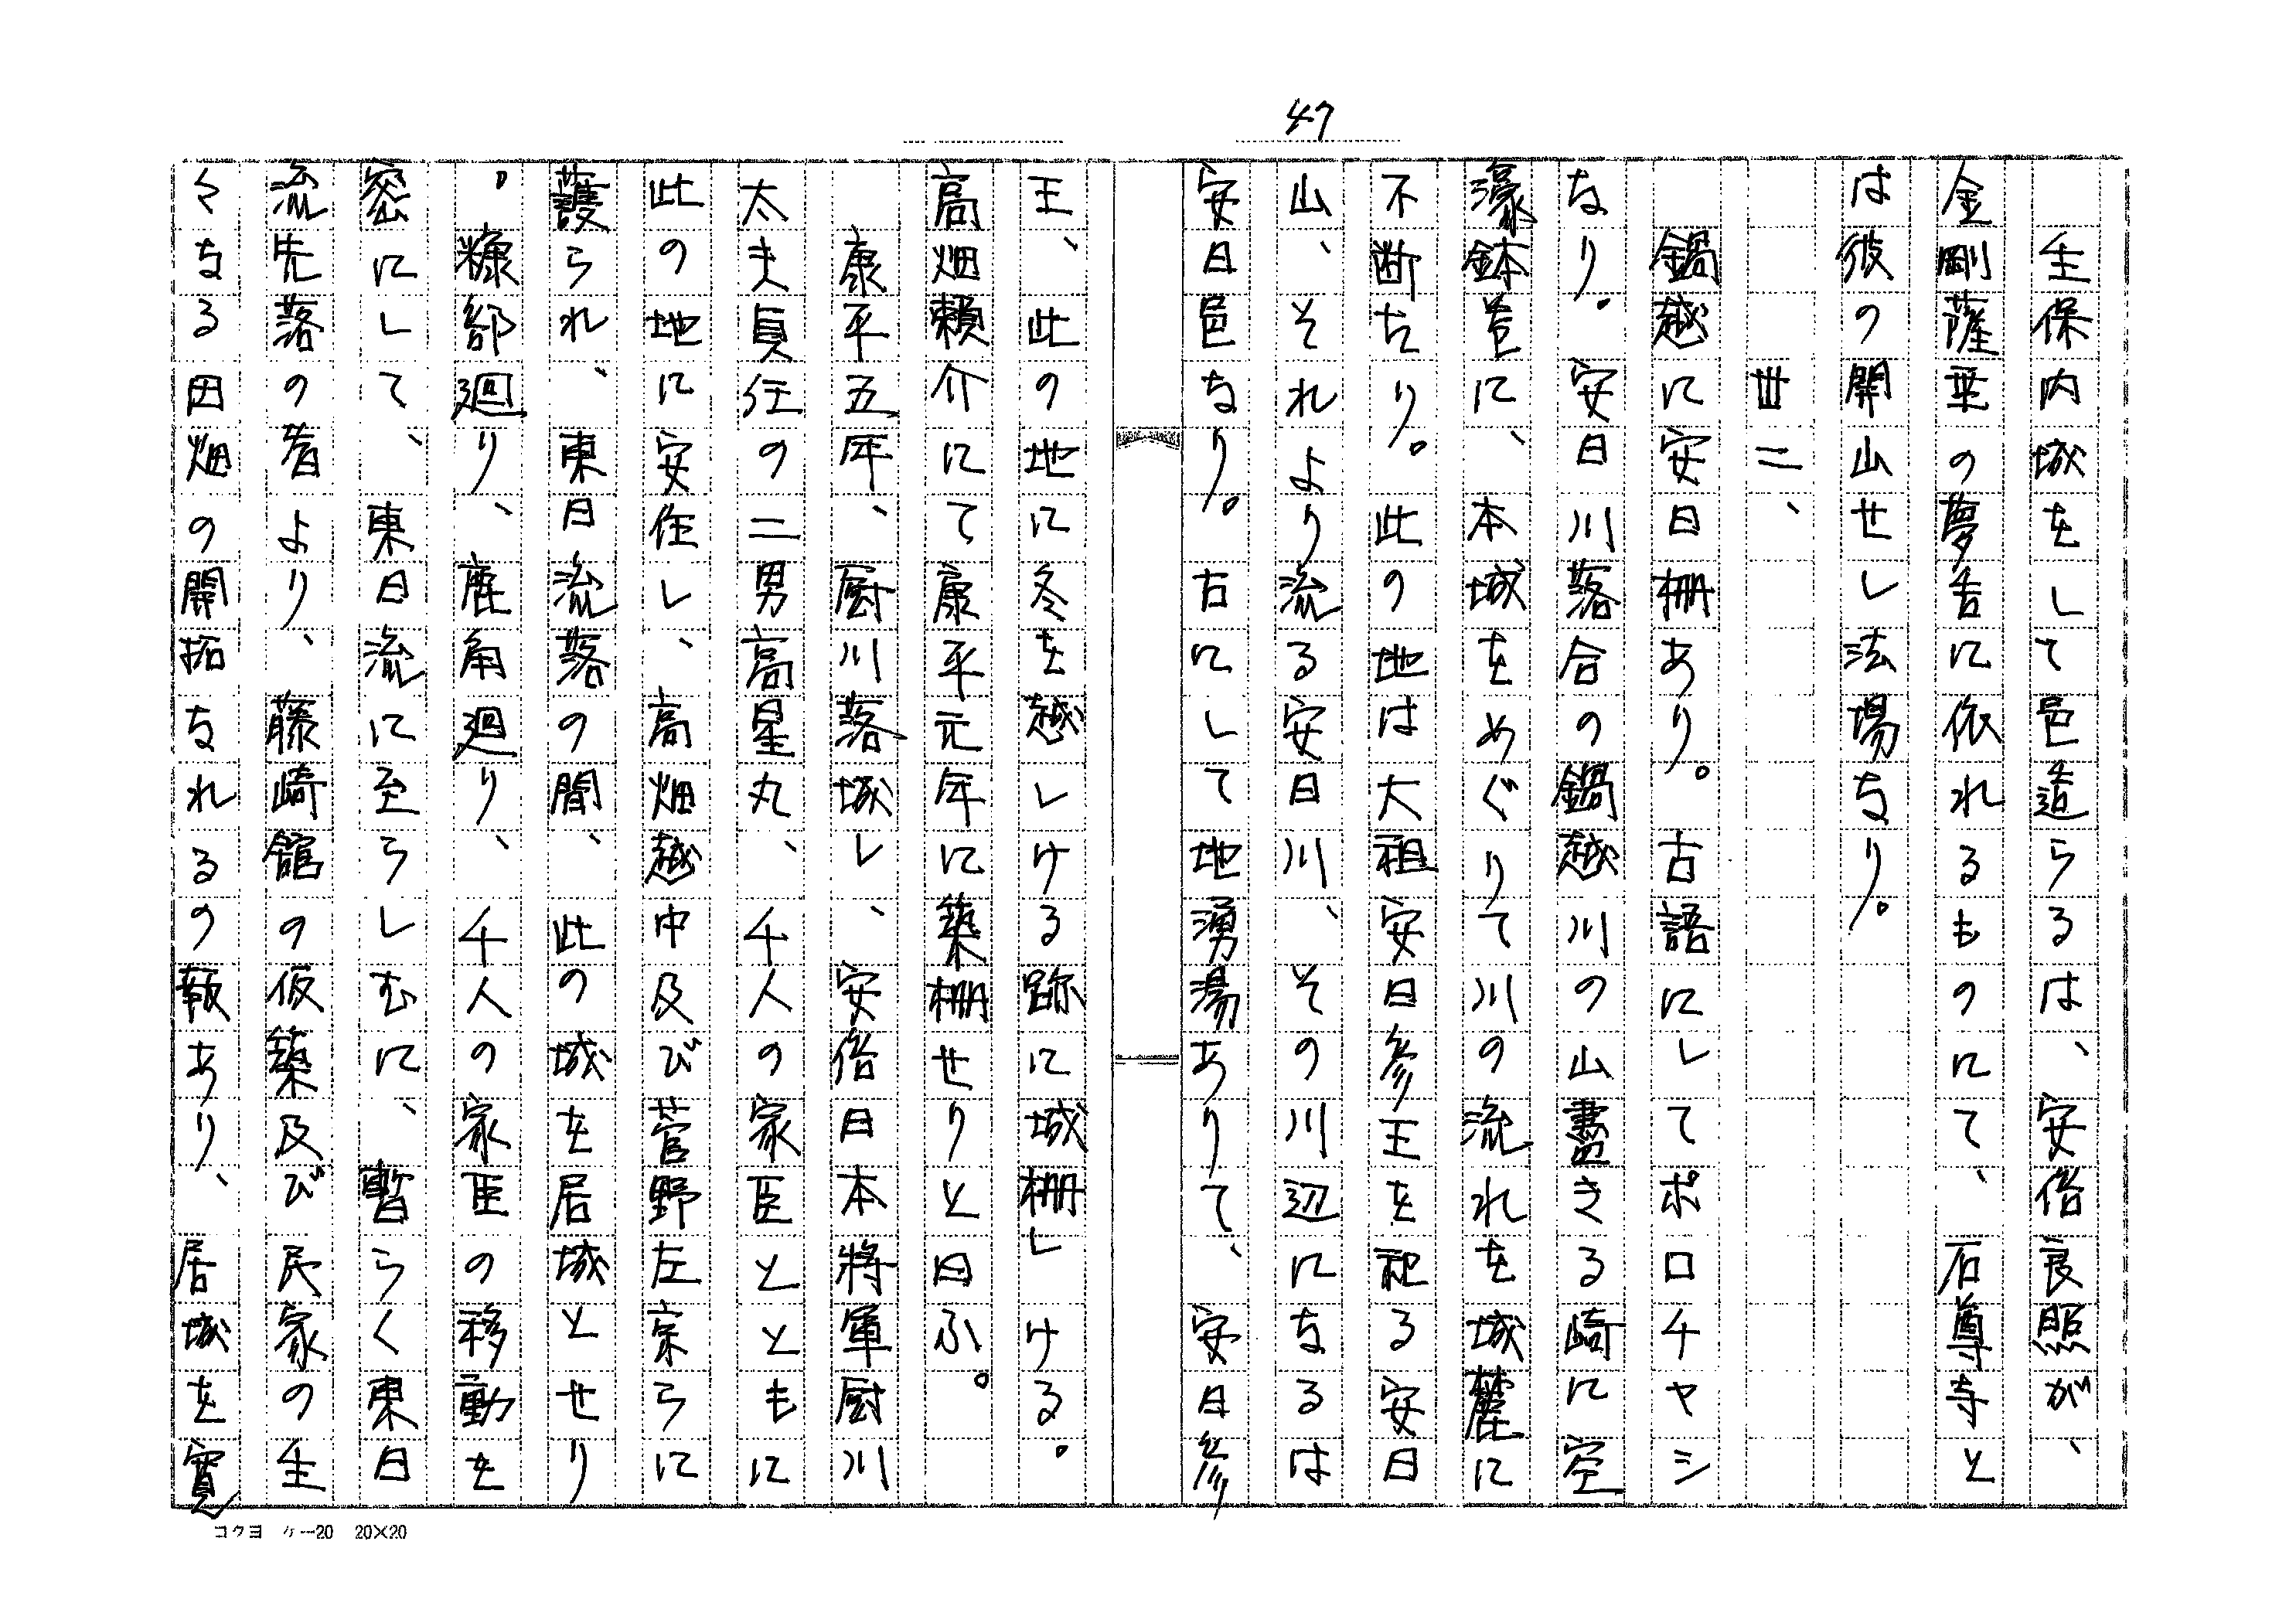 47
生保内城をして邑造らるは、安倍良照が、
金剛薩埵の夢告に依れるものにて、石尊寺と
は彼の開山せし法場なり。
丗二、
鍋越に安日柵あり。古語にしてポロチャシ
なり。安日川落合の鍋越川の山盡きる崎に空
濠鉢巻に、本城をめぐりて川の流れを城麓に
不断たり。此の地は大祖安日彦王を祀る安日
山、それより流る安日川、その川辺になるは
安日邑なり。古にして地湧湯ありて、安日彦
王、此の地に冬を越しける跡に城柵しける。
高畑賴介にて康平元年に築柵せりと曰ふ。
康平五年、厨川落城し、安倍日本將軍厨川
太夫貞任の二男高星丸、千人の家臣とともに
此の地に安住し、高畑越中及び菅野左京らに
護られ、東日流落の間、此の城を居城とせり
。糠部廻り、鹿角廻り、千人の家臣の移動を
密にして、東日流に至らしむに、暫らく東日
流先落の者より、藤崎舘の仮築及び民家の生
々なる田畑の開拓なれるの報あり、居城を寛
コクヨ ケー20 20×20